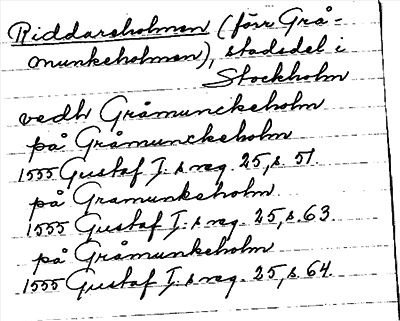 Riddarholmen (förr Grå-
munkeholmen), stadsdel i
Stockholm
vedh Gråmunckeholm
på Gråmunckeholm
1555 Gustaf I:s reg. 25, s. 51.
på Gramunkeholm
1555 Gustaf I:s reg. 25, s. 63.
på Gråmunkeholm
1555 Gustaf I:s reg. 25, s. 64.